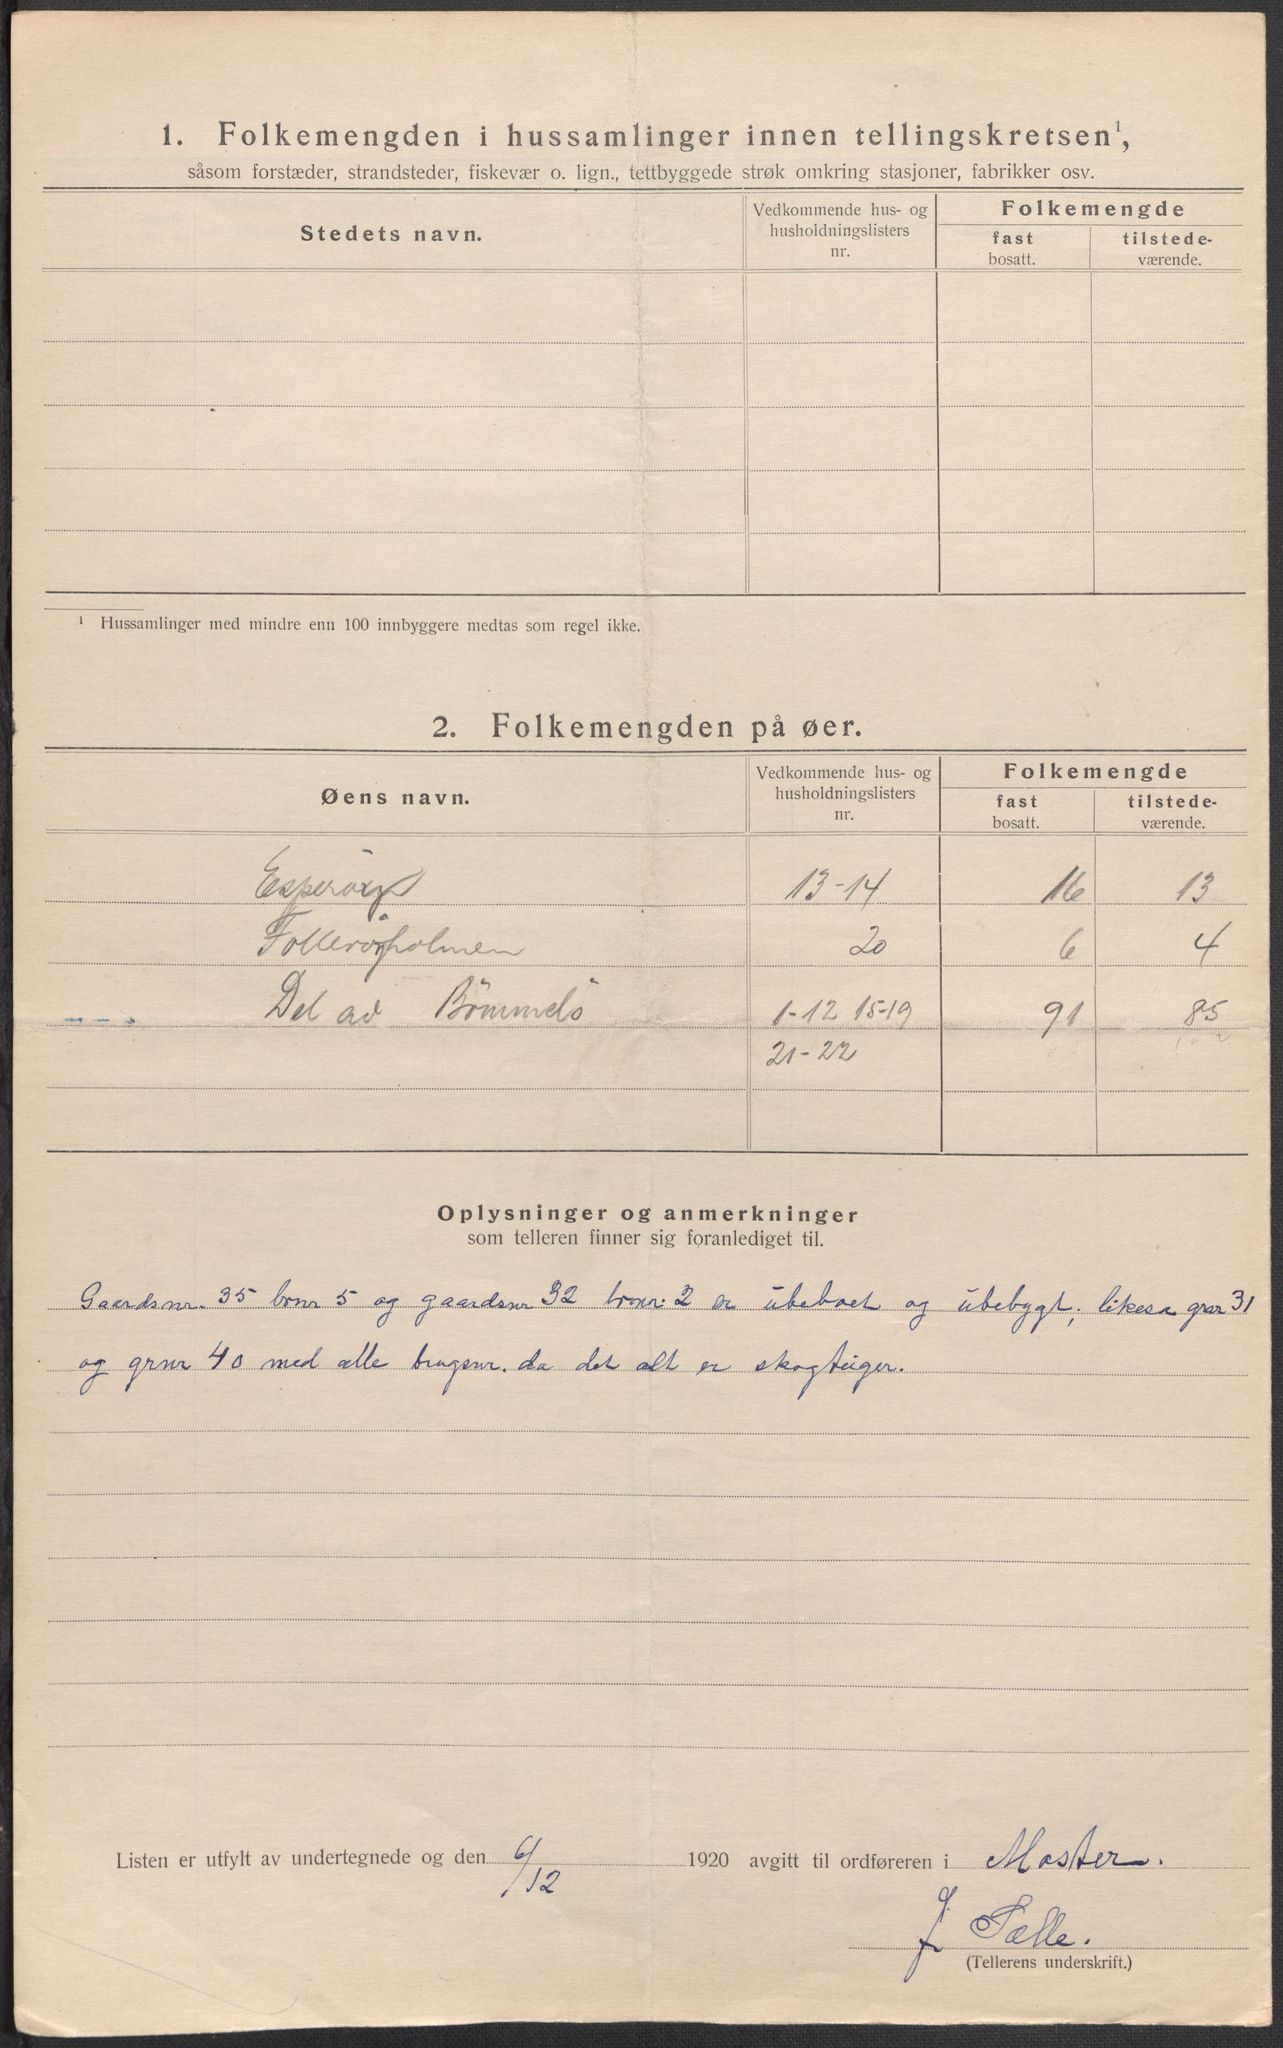 1. Folkemengden i hussamlinger innen tellingskretsen¹,
såsom forstæder, strandsteder, fiskevær o. lign., tettbyggede strøk omkring stasjoner, fabrikker osv.
Stedets navn.
Vedkommende hus- og husholdningslisters nr.
Folkemengde
fast bosatt.
tilstede-værende.
¹ Hussamlinger med mindre enn 100 innbyggere medtas som regel ikke.
2. Folkemengden på øer.
Øens navn.
Vedkommende hus- og husholdningslisters nr.
Folkemengde
fast bosatt.
tilstede-værende.
Esperöy 13-14 16 13
Folleröyholmen 20 6 4
Del av Bömmelö 1-12 15-19 91 85
21-22
Oplysninger og anmerkninger
som telleren finner sig foranlediget til.
Gaardsnr. 35 brnr 5 og gaardsnr 32 brnr. 2 er ubeboet og ubebygt, likesa grnr 31
og grnr 40 med alle brugsnr. da det alt er skogteiger.
Listen er utfylt av undertegnede og den 6/12 1920 avgitt til ordføreren i Moster.
J. Sælle.
(Tellerens underskrift.)